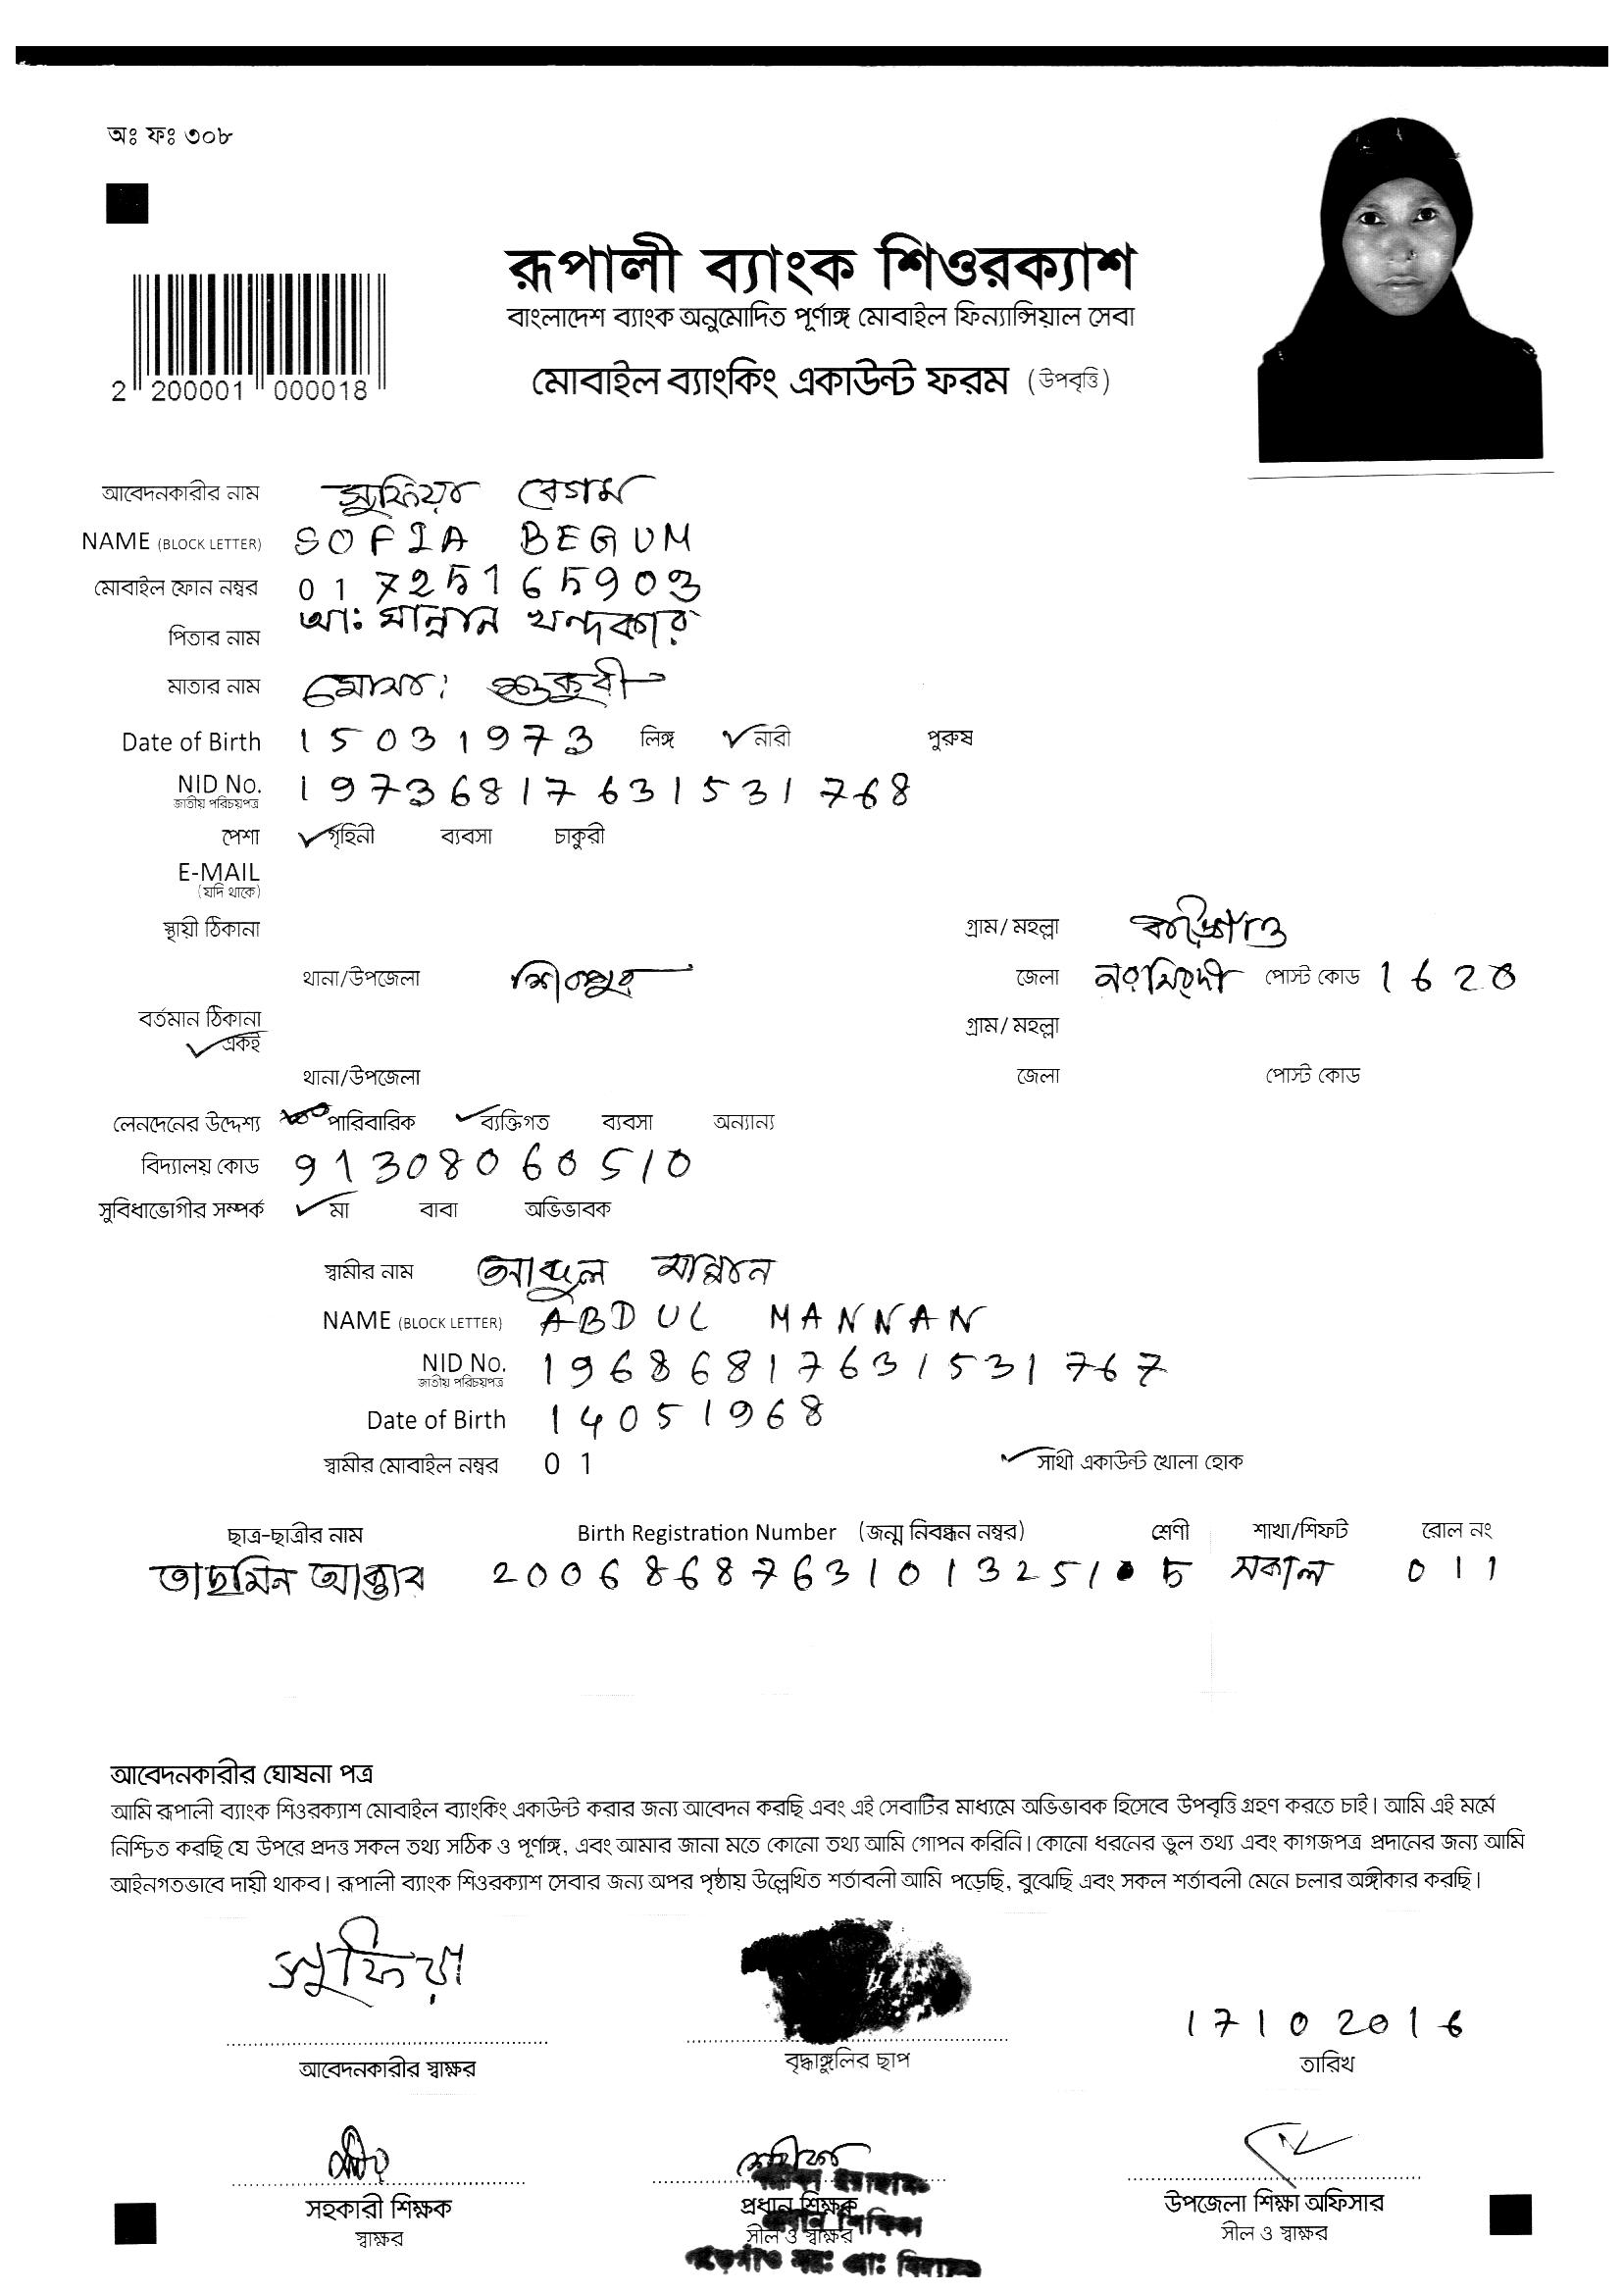 অঃ ফঃ ৩০৮
রূপালী ব্যাংক শিওরক্যাশ
বাংলাদেশ ব্যাংক অনুমোদিত পূর্ণাঙ্গ মোবাইল ফিন্যান্সিয়াল সেবা
মোবাইল ব্যাংকিং একাউন্ট ফরম (উপবৃত্তি)
2 200001 000018
আবেদনকারীর নাম সুফিয়া বেগম
NAME (BLOCK LETTER) SOFIA BEGUM
মোবাইল ফোন নম্বর 01725165903
পিতার নাম আঃ মান্নান খন্দকার
মাতার নাম মোসাঃ
Date of Birth 15031973 লিঙ্গ নারী পুরুষ
NID No. 19736817631531768
জাতীয় পরিচয়পত্র
পেশা গৃহিনী ব্যবসা চাকুরী
E-MAIL
(যদি থাকে)
স্থায়ী ঠিকানা গ্রাম/ মহল্লা
থানা/উপজেলা শিবপুর জেলা নরসিংদী পোস্ট কোড 1620
বর্তমান ঠিকানা গ্রাম/ মহল্লা
একই
থানা/উপজেলা জেলা পোস্ট কোড
লেনদেনের উদ্দেশ্য পারিবারিক ব্যক্তিগত ব্যবসা অন্যান্য
বিদ্যালয় কোড 91308060510
সুবিধাভোগীর সম্পর্ক মা বাবা অভিভাবক
স্বামীর নাম আব্দুল মান্নান
NAME (BLOCK LETTER) ABDUL MANNAN
NID No. 19686817631531767
জাতীয় পরিচয়পত্র
Date of Birth 14051968
স্বামীর মোবাইল নম্বর 01 সাথী একাউন্ট খোলা হোক
ছাত্র-ছাত্রীর নাম Birth Registration Number (জন্ম নিবন্ধন নম্বর) শ্রেণী শাখা/শিফট রোল নং
তাছমিন আক্তার 20068687631013251 05 সকাল 011
আবেদনকারীর ঘোষনা পত্র
আমি রূপালী ব্যাংক শিওরক্যাশ মোবাইল ব্যাংকিং একাউন্ট করার জন্য আবেদন করছি এবং এই সেবাটির মাধ্যমে অভিভাবক হিসেবে উপবৃত্তি গ্রহণ করতে চাই। আমি এই মর্মে
নিশ্চিত করছি যে উপরে প্রদত্ত সকল তথ্য সঠিক ও পূর্ণাঙ্গ, এবং আমার জানা মতে কোনো তথ্য আমি গোপন করিনি। কোনো ধরনের ভুল তথ্য এবং কাগজপত্র প্রদানের জন্য আমি
আইনগতভাবে দায়ী থাকব। রূপালী ব্যাংক শিওরক্যাশ সেবার জন্য অপর পৃষ্ঠায় উল্লেখিত শর্তাবলী আমি পড়েছি, বুঝেছি এবং সকল শর্তাবলী মেনে চলার অঙ্গীকার করছি।
সুফিয়া
17102016
আবেদনকারীর স্বাক্ষর বৃদ্ধাঙ্গুলির ছাপ তারিখ
সহকারী শিক্ষক প্রধান শিক্ষক উপজেলা শিক্ষা অফিসার
স্বাক্ষর সীল ও স্বাক্ষর সীল ও স্বাক্ষর